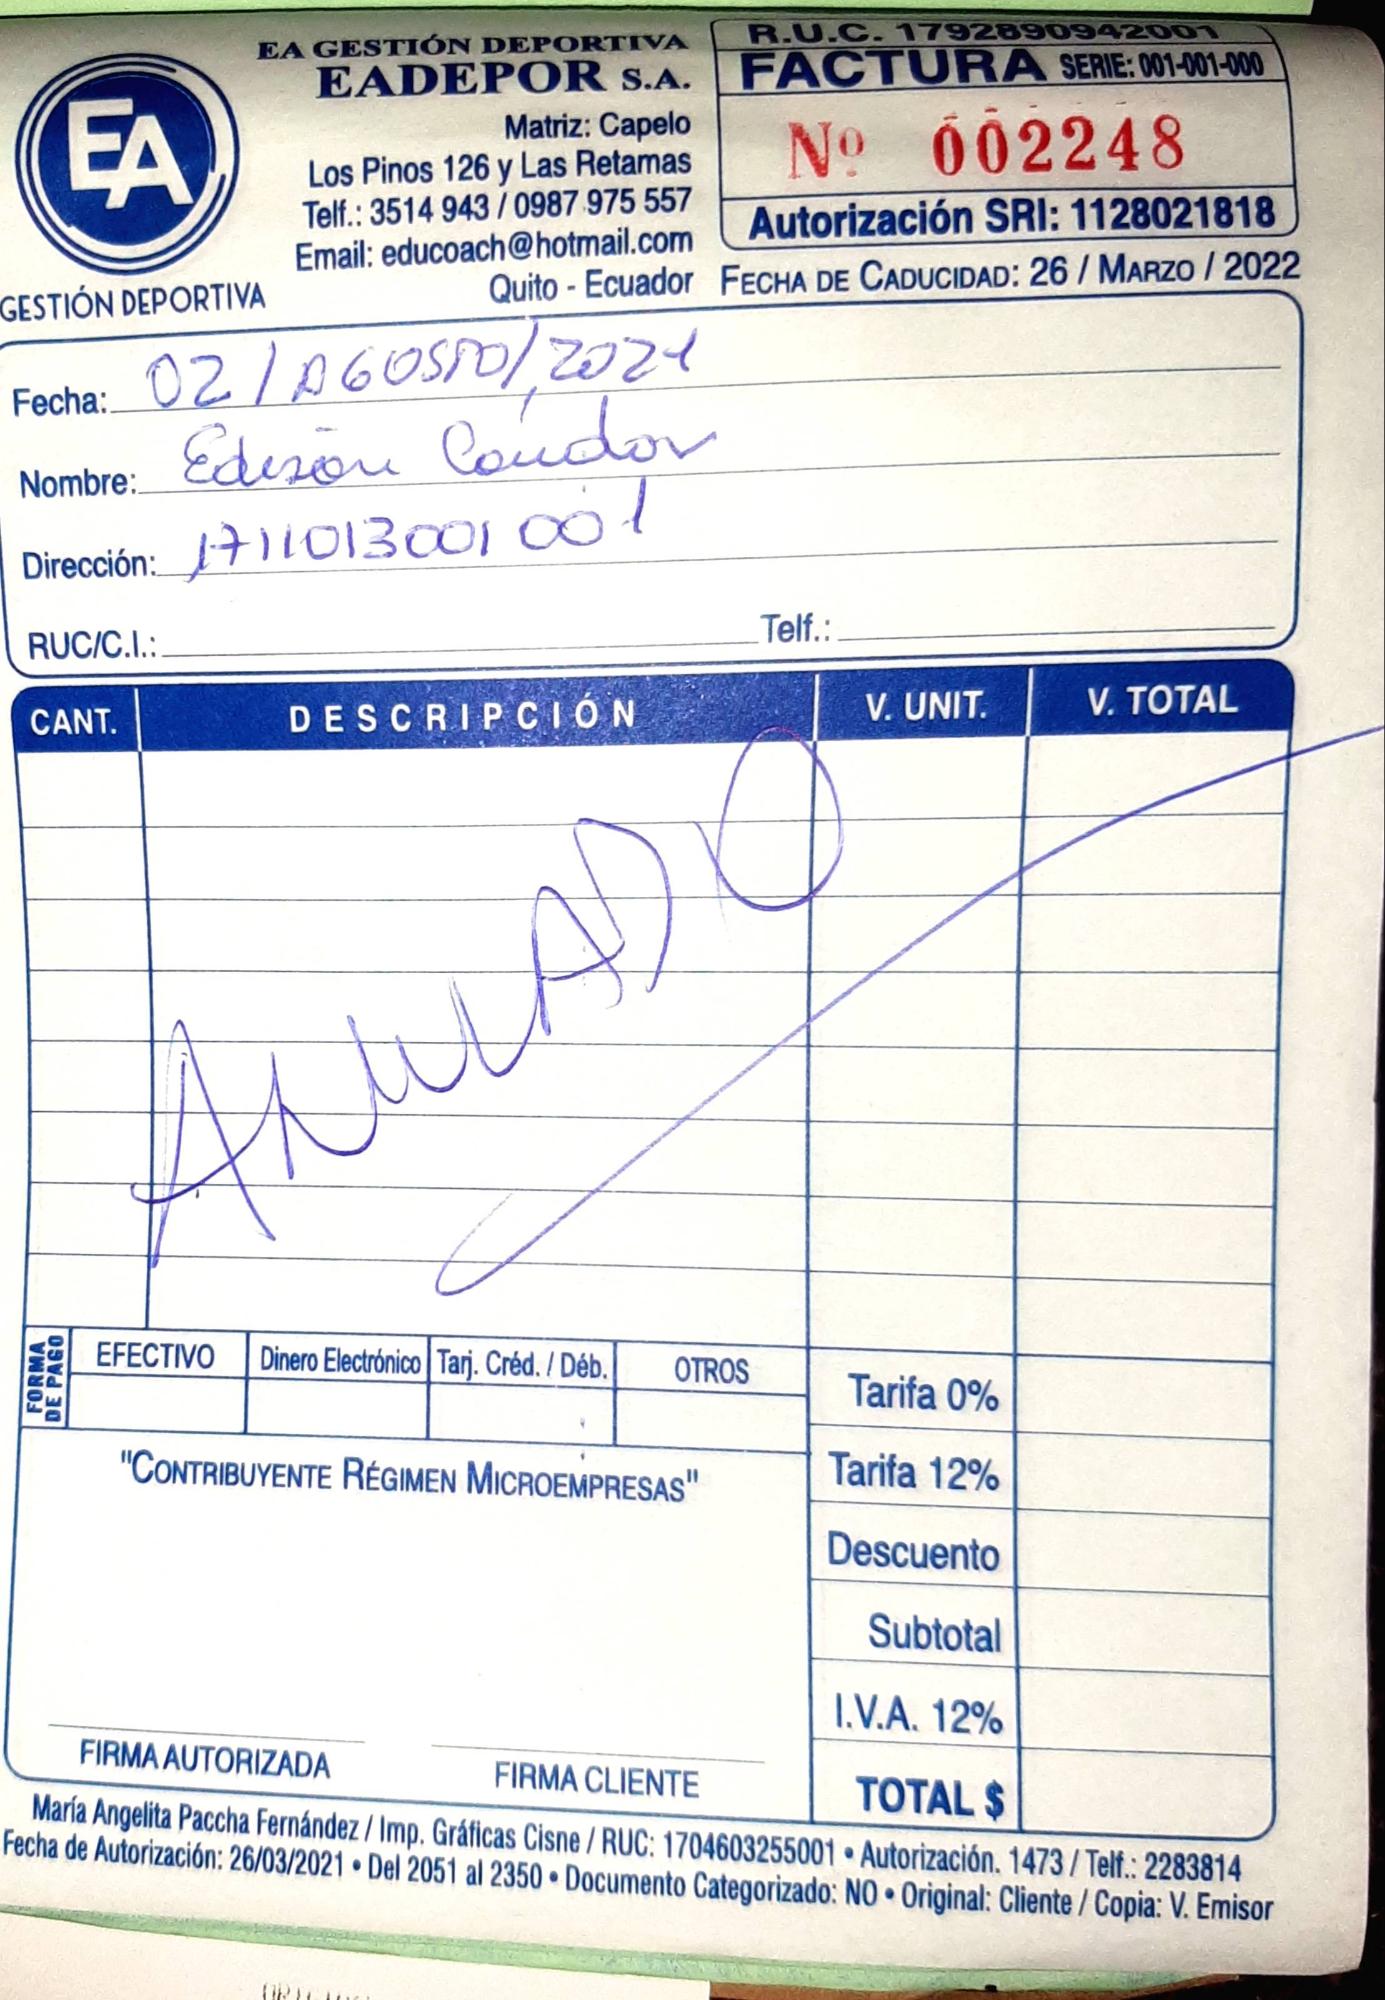 EA GESTIÓN DEPORTIVA
EADEPOR S.A.
Matriz: Capelo
Los Pinos 126 y Las Retamas
Telf.: 3514 943 / 0987 975 557
Email: educoach@hotmail.com
Quito - Ecuador
EA
GESTIÓN DEPORTIVA
R.U.C. 1792890942001
FACTURA SERIE: 001-001-000
Nº 002248
Autorización SRI: 1128021818
FECHA DE CADUCIDAD: 26 / MARZO / 2022
Fecha: 02/AGOSTO/2021
Nombre: Edison Cóndor
Dirección: 1711013001 001
RUC/C.I.: Telf.:
CANT. DESCRIPCIÓN V. UNIT. V. TOTAL
ANULADO
FORMA DE PAGO
EFECTIVO Dinero Electrónico Tarj. Créd. / Déb. OTROS
"CONTRIBUYENTE RÉGIMEN MICROEMPRESAS"
Tarifa 0%
Tarifa 12%
Descuento
Subtotal
I.V.A. 12%
TOTAL $
FIRMA AUTORIZADA FIRMA CLIENTE
María Angelita Paccha Fernández / Imp. Gráficas Cisne / RUC: 1704603255001 • Autorización. 1473 / Telf.: 2283814
Fecha de Autorización: 26/03/2021 • Del 2051 al 2350 • Documento Categorizado: NO • Original: Cliente / Copia: V. Emisor